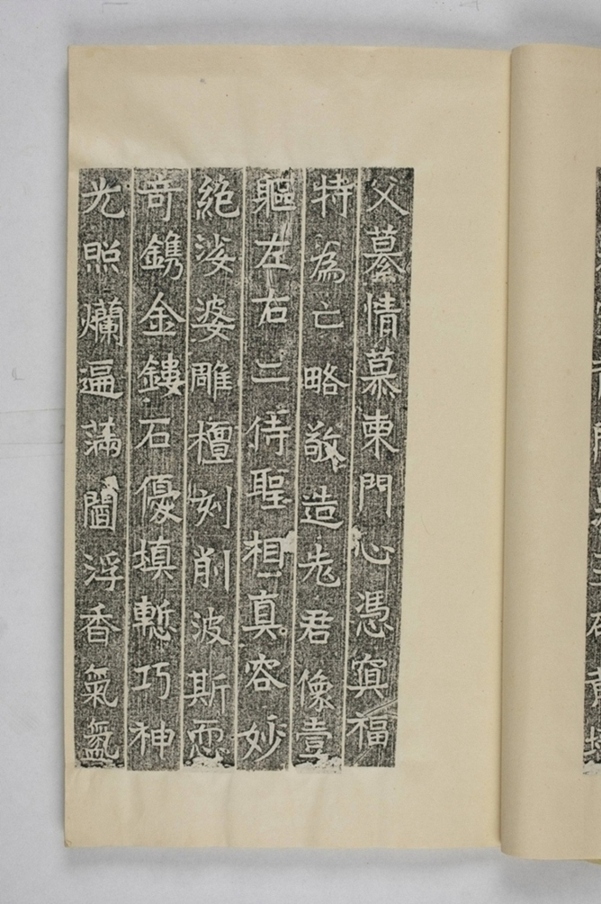 父墓情慕東門心憑寘福
特為亡略敬造老君像壹
軀左右二侍聖相真容妙
絶娑婆雕檀刻削波斯恧
竒鐫金鏤石優填慙巧神
光照爛遍滿閻浮香氣氤